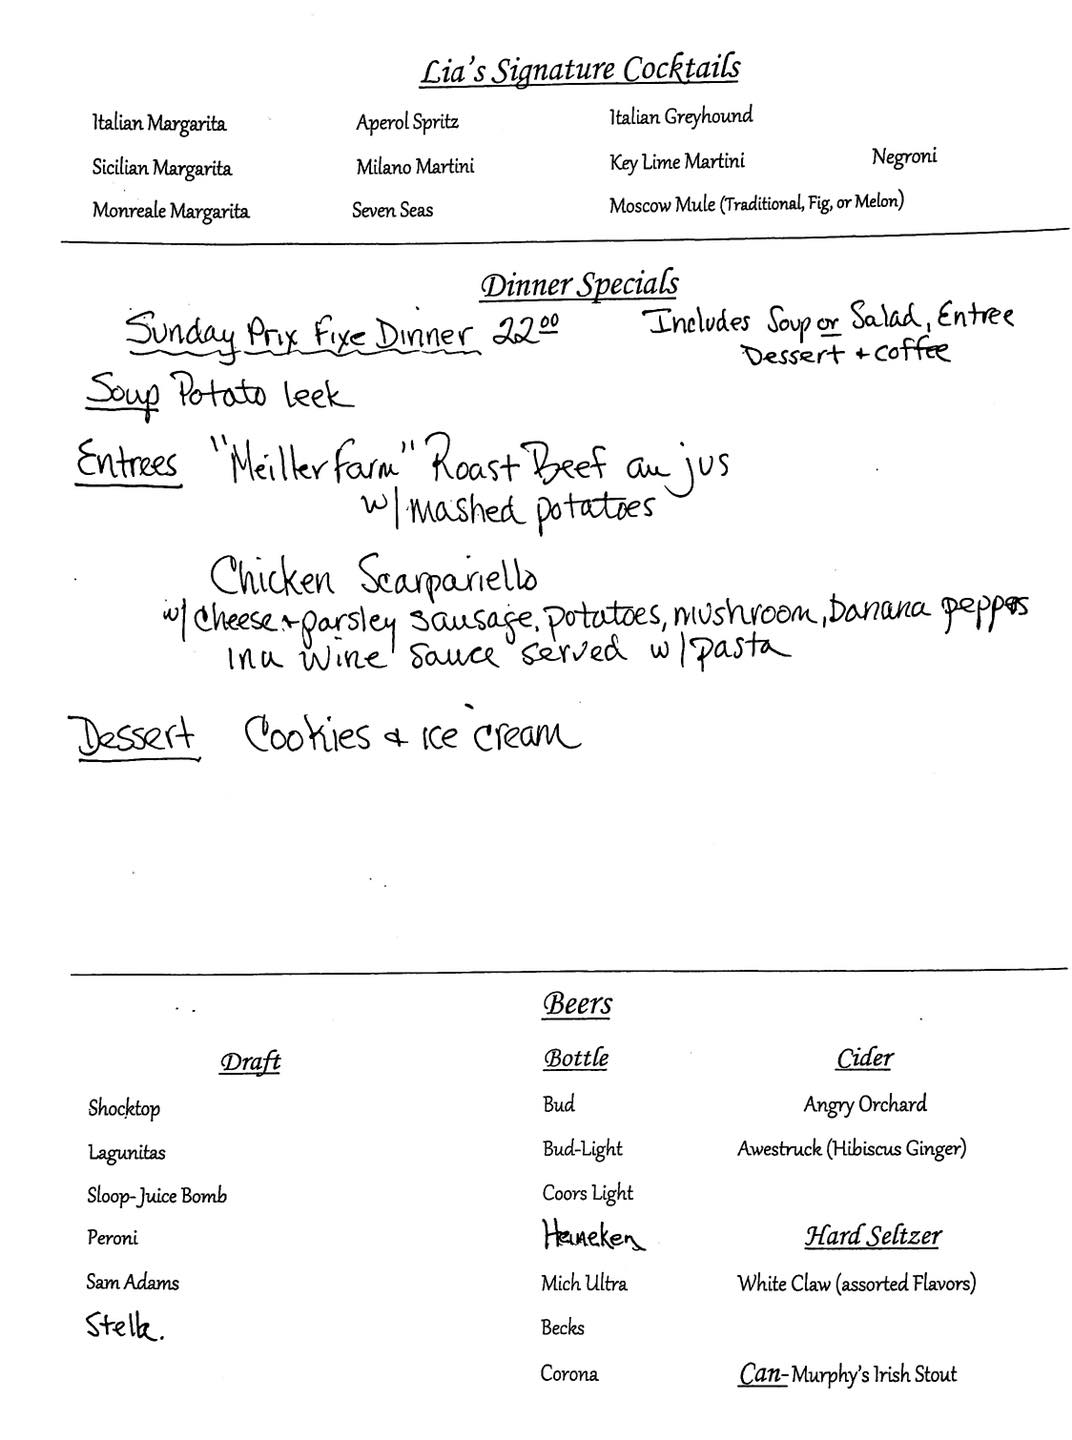 Lia's Signature Cocktails
Italian Margarita Aperol Spritz Italian Greyhound
Sicilian Margarita Milano Martini Key Lime Martini Negroni
Monreale Margarita Seven Seas Moscow Mule (Traditional, Fig, or Melon)
Dinner Specials
Sunday Prix Fixe Dinner 22.00 Includes Soup or Salad, Entree
Dessert + coffee
Soup Potato leek
Entrees "Meiller farm" Roast Beef au jus
w/ mashed potatoes
Chicken Scarpariello
w/ cheese + parsley sausage, potatoes, mushroom, banana peppers
in a wine sauce served w/ pasta
Dessert Cookies & ice cream
Beers
Draft Bottle Cider
Shocktop Bud Angry Orchard
Lagunitas Bud-Light Awestruck (Hibiscus Ginger)
Sloop-Juice Bomb Coors Light
Peroni Heineken Hard Seltzer
Sam Adams Mich Ultra White Claw (assorted Flavors)
Stella. Becks
Corona Can-Murphy's Irish Stout